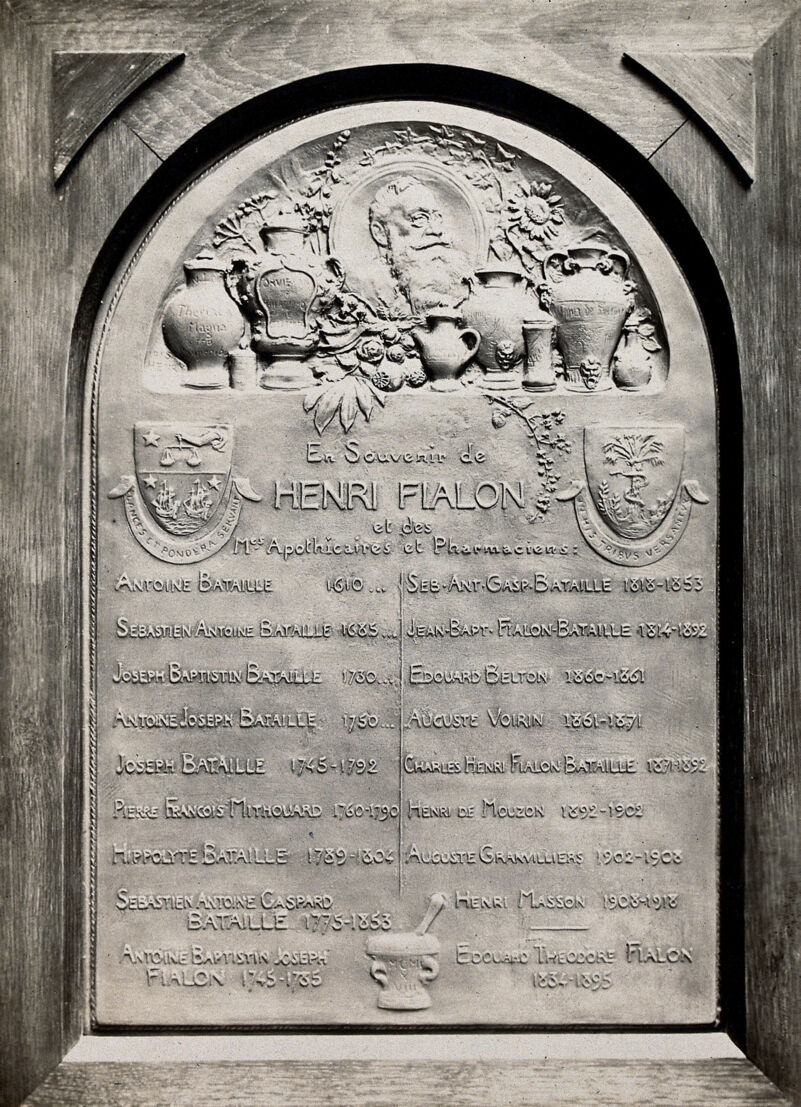 Theriaca
Magna
ORVIE
En Souvenir de
HENRI FIALON
et des
Mes Apothicaires et Pharmaciens:
LANCES ET PONDERA SERVANT
IN HIS TRIBUS VERSANTUR
ANTOINE BATAILLE 1610...
SEBASTIEN ANTOINE BATAILLE 1685...
JOSEPH BAPTISTIN BATAILLE 1730...
ANTOINE JOSEPH BATAILLE 1750...
JOSEPH BATAILLE 1745-1792
PIERRE FRANCOIS MITHOUARD 1760-1790
HIPPOLYTE BATAILLE 1789-1804
SEBASTIEN ANTOINE GASPARD
BATAILLE 1775-1853
ANTOINE BAPTISTIN JOSEPH
FIALON 1745-1785
SEB·ANT·GASP·BATAILLE 1818-1853
JEAN-BAPT·FIALON-BATAILLE 1814-1892
EDOUARD BELTON 1860-1861
AUGUSTE VOIRIN 1861-1871
CHARLES HENRI FIALON BATAILLE 1871-1892
HENRI DE MOUZON 1892-1902
AUGUSTE GRANVILLIERS 1902-1908
HENRI MASSON 1908-1918
EDOUARD THEODORE FIALON
1834-1895
MCM
VIII